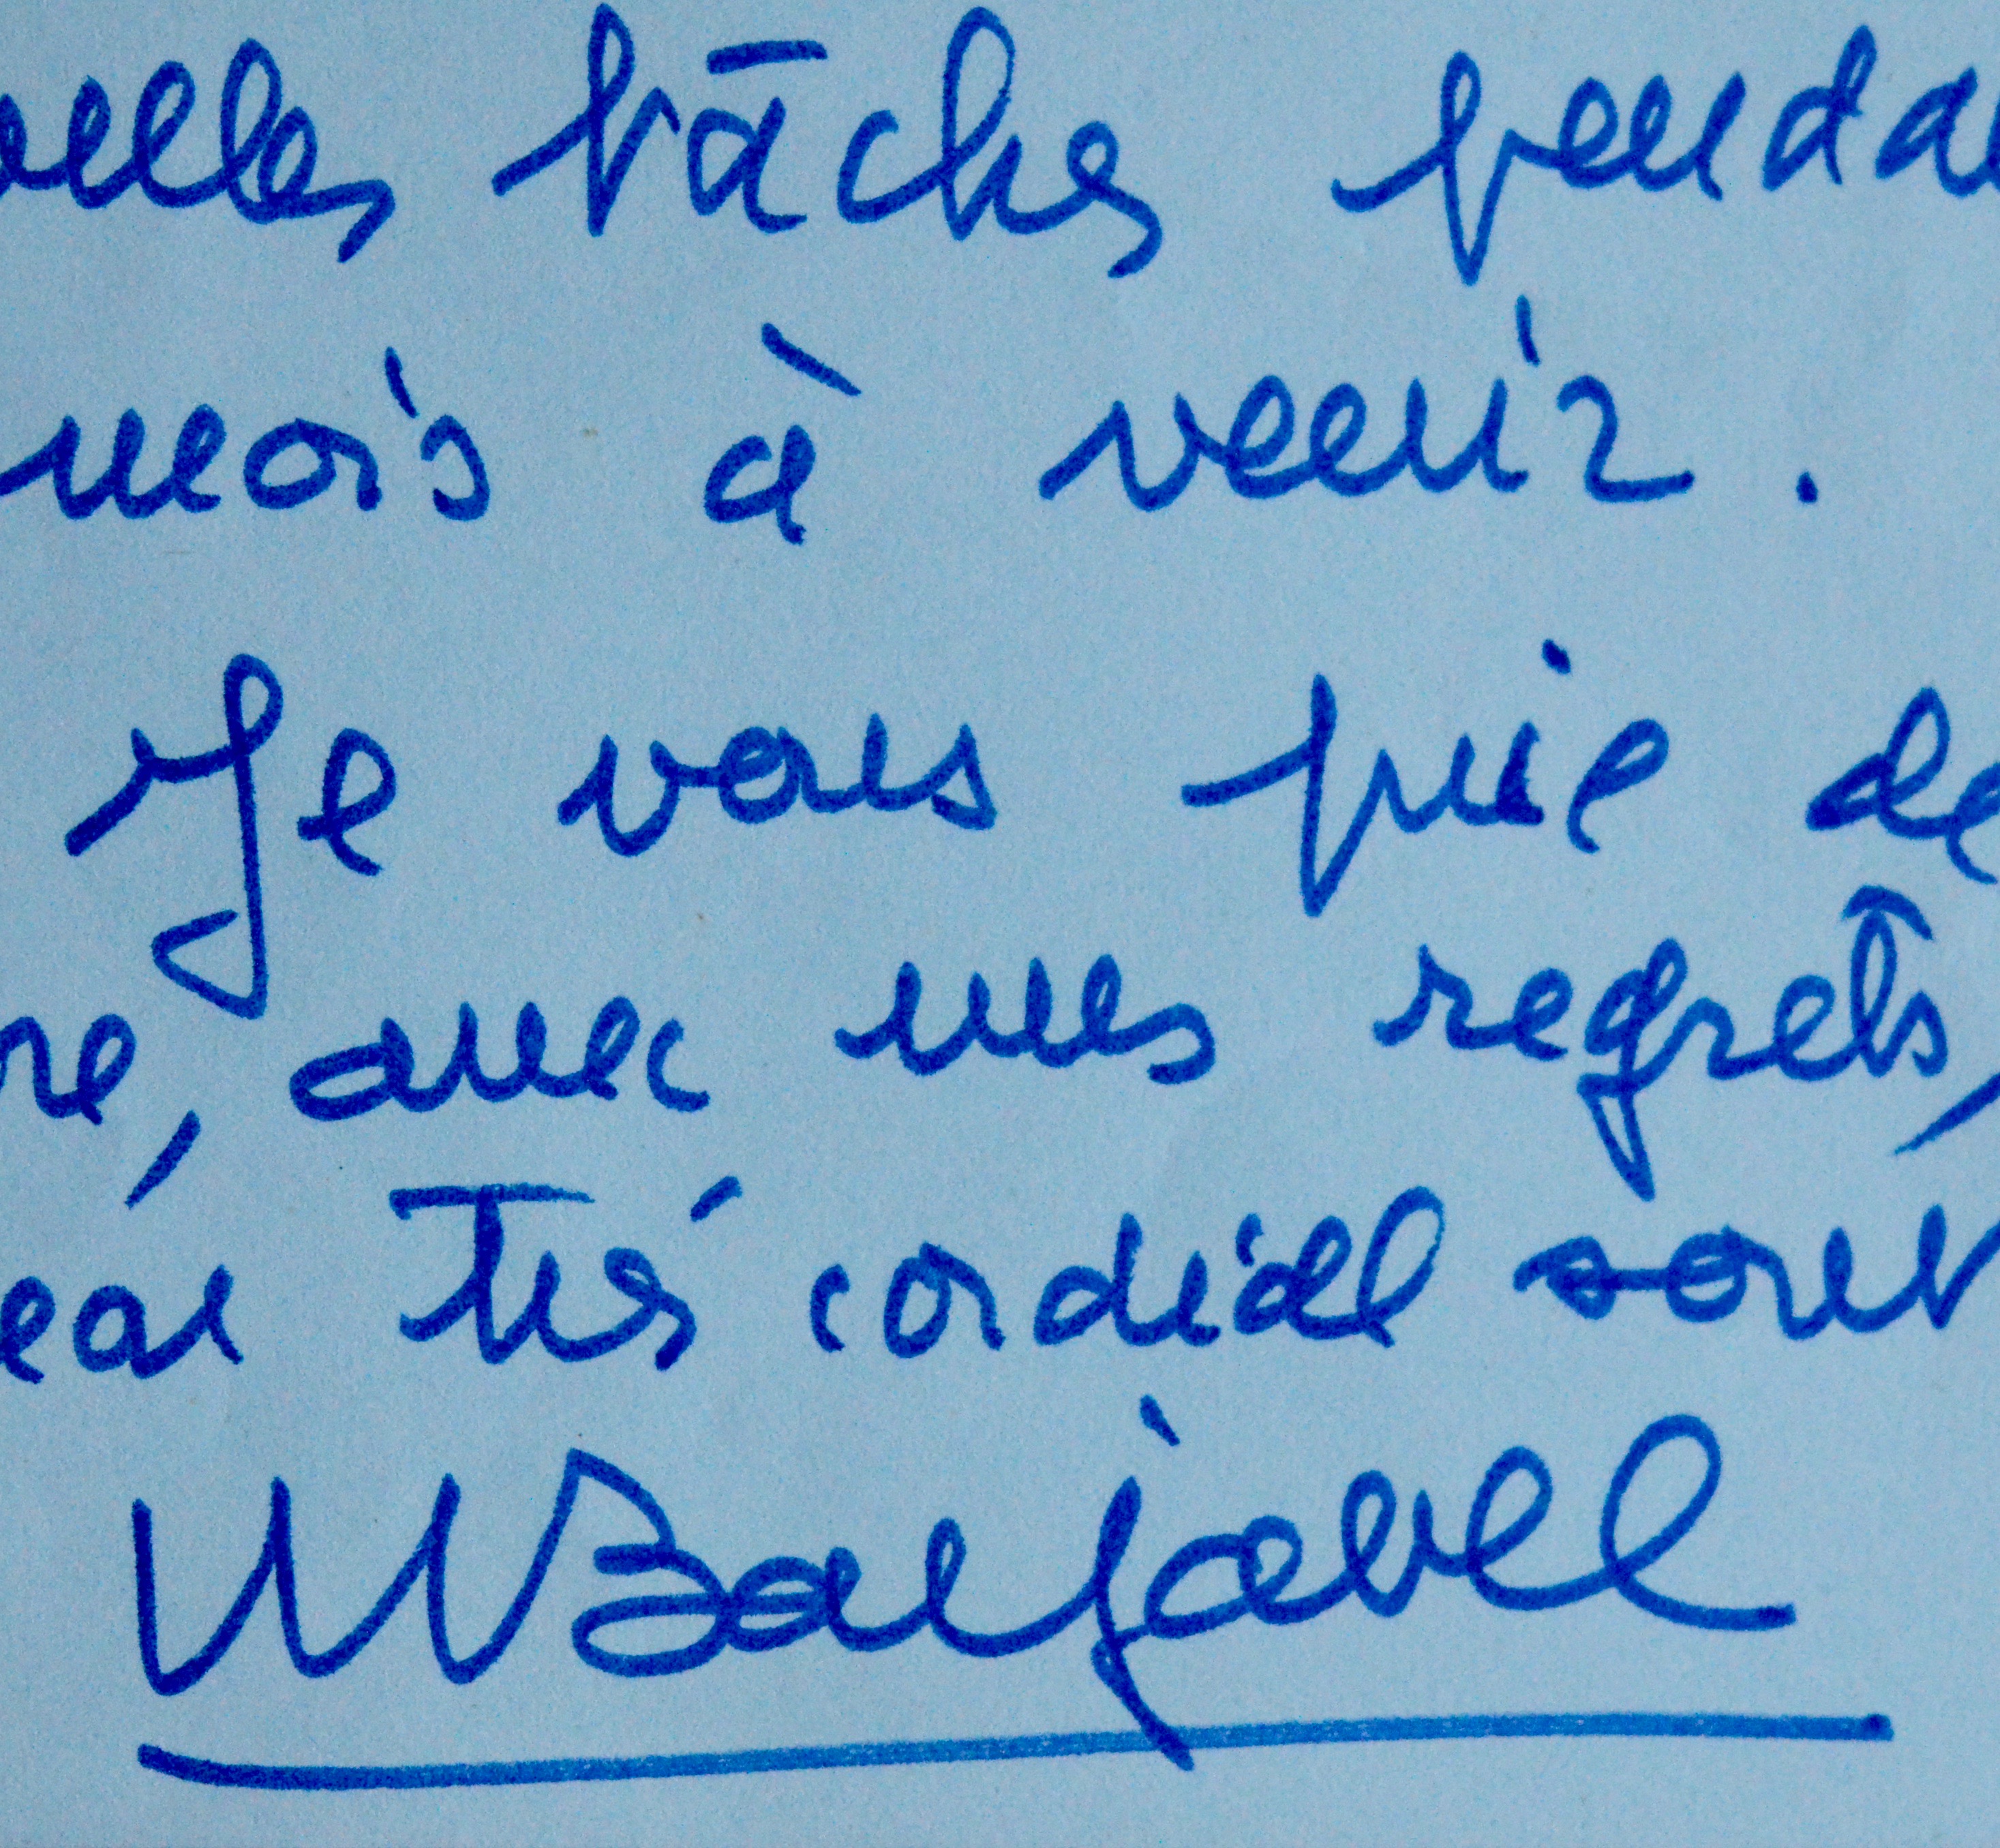 velles tâches penda
mois à venir.
Je vous prie de
re, avec mes regrets,
très cordial souv
Barjavel